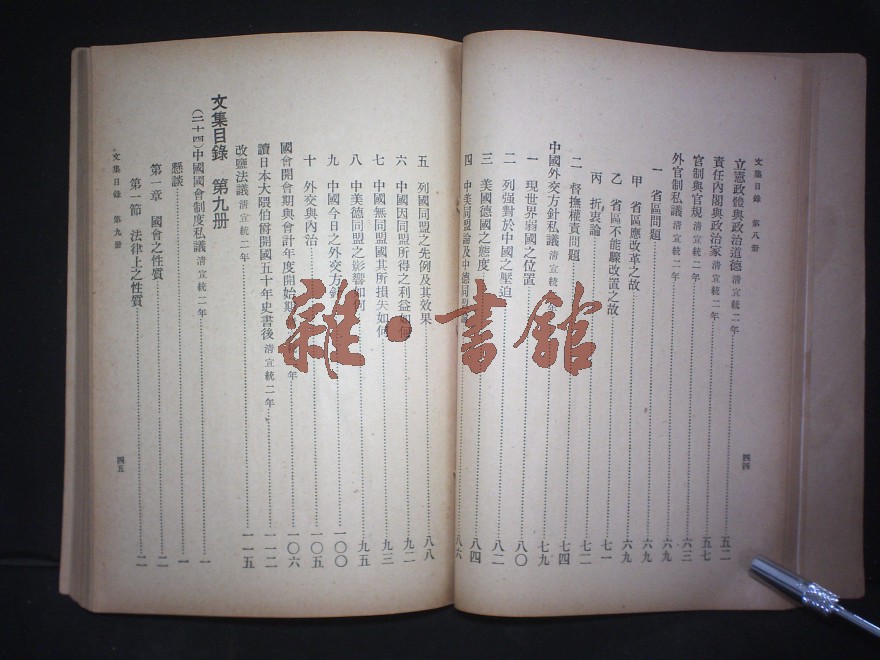 文集目錄 第八册
立憲政體與政治道德 清宣統二年 五二
責任內閣與政治家 清宣統二年 五七
官制與官規 清宣統二年 六三
外官制私議 清宣統二年 六九
一 省區問題 六九
甲 省區應改革之故 六九
乙 省區不能驟改置之故 七一
丙 折衷論 七二
二 督撫權責問題 七四
中國外交方針私議 清宣統二年 七九
一 現世界弱國之位置 八〇
二 列强對於中國之壓迫 八二
三 美國德國之態度 八四
四 中美同盟論及中德同盟 八六
四四
五 列國同盟之先例及其效果 八八
六 中國因同盟所得之利益如何 九二
七 中國無同盟國其所損失如何 九三
八 中美德同盟之影響如何 九五
九 中國今日之外交方針 一〇〇
十 外交與內治 一〇五
國會開會期與會計年度開始期 年 一〇六
讀日本大隈伯爵開國五十年史書後 清宣統二年 一一二
改鹽法議 清宣統二年 一一五
文集目錄 第九册
(二十四)中國國會制度私議 清宣統二年 一
懸談 一
第一章 國會之性質 二
第一節 法律上之性質 二
文集目錄 第九册
四五
雜·書館